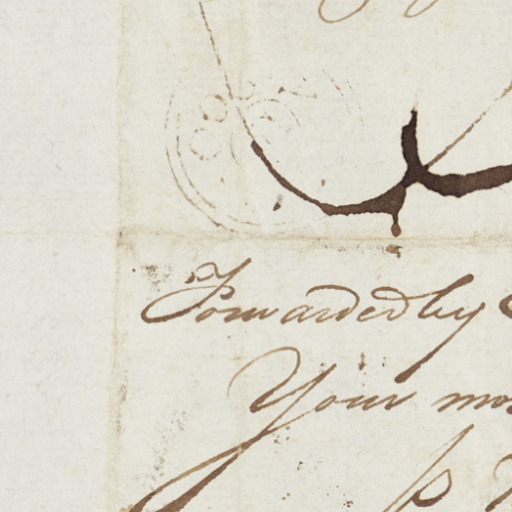 Forwarded by
Your mo